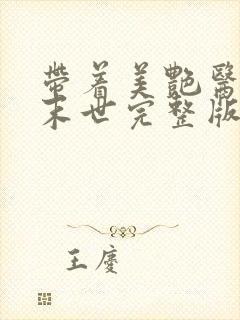 帶着美艷醫
末世完整版
王慶